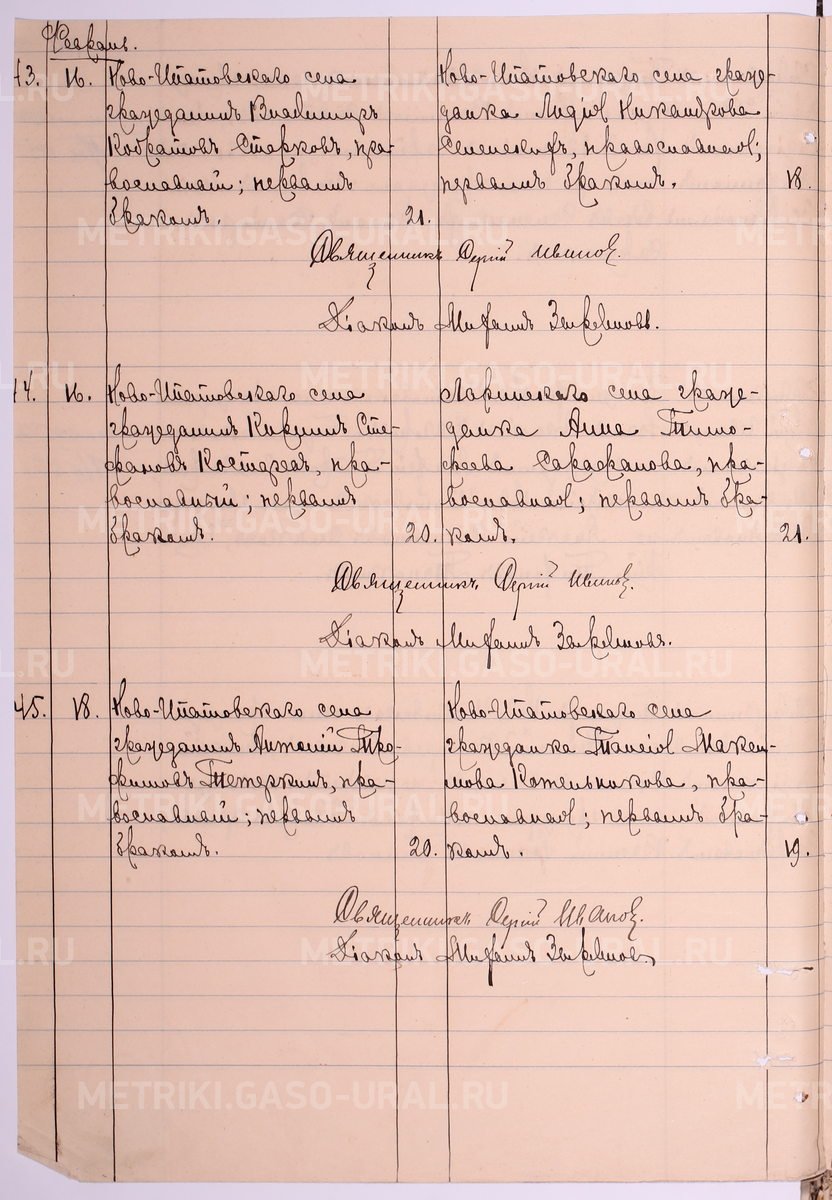 Февраль.
43. 16. Ново-Ипатовскаго села
гражданинъ Владимиръ
Кодратовъ Старковъ, пра-
вославный; первымъ
бракомъ. 21.
Ново-Ипатовскаго села граж-
данка Лидія Никандрова
православная;
первымъ бракомъ. 18.
Священникъ Сергій Ивановъ.
Діаконъ Михаилъ
44. 16. Ново-Ипатовскаго села
гражданинъ Кирилъ Сте-
фановъ Костарев, пра-
вославный; первымъ
бракомъ. 20.
Ларинскаго села граж-
данка Анна Тимо-
феева Сарафанова, пра-
вославная; первымъ бра-
комъ. 21.
Священникъ Сергій Ивановъ.
Діаконъ Михаилъ
45. 18. Ново-Ипатовскаго села
гражданинъ Антоній Тро-
фимовъ Тетеркинъ, пра-
вославный; первымъ
бракомъ. 20.
Ново-Ипатовскаго села
гражданка Таисія Макси-
мова Котельникова, пра-
вославная; первымъ бра-
комъ. 19.
Священникъ Сергій Ивановъ.
Діаконъ Михаилъ
METRIKI.GASO-URAL.RU